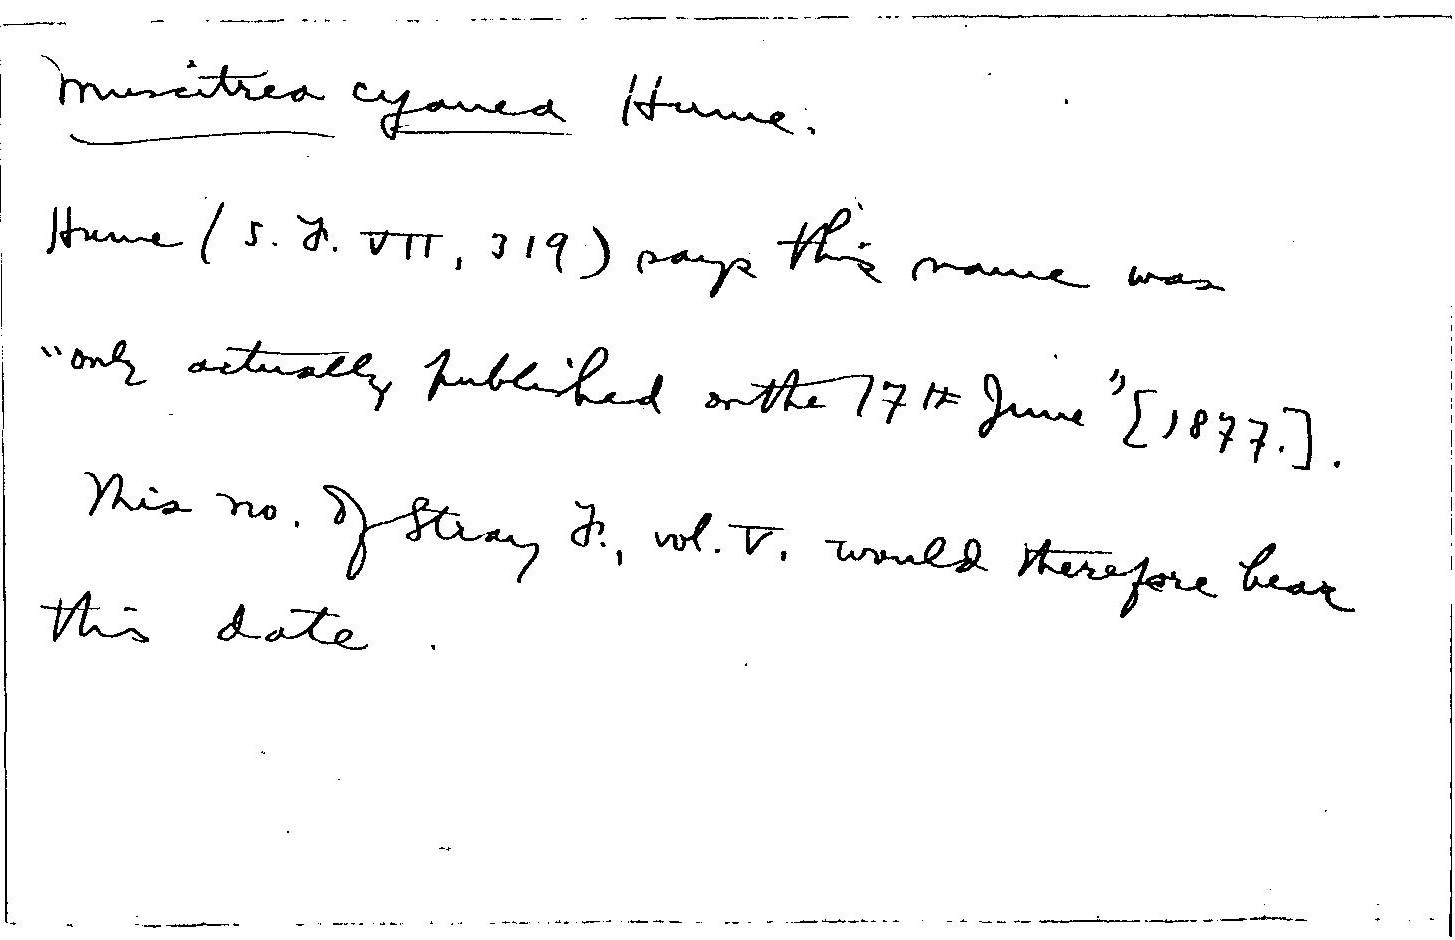 Muscitrea cyanea Hume.
Hume (S. F. VII, 319) says this name was
"only actually published on the 17th June" [1877.].
This no. of Stray F., vol. V. would therefore bear
this date.